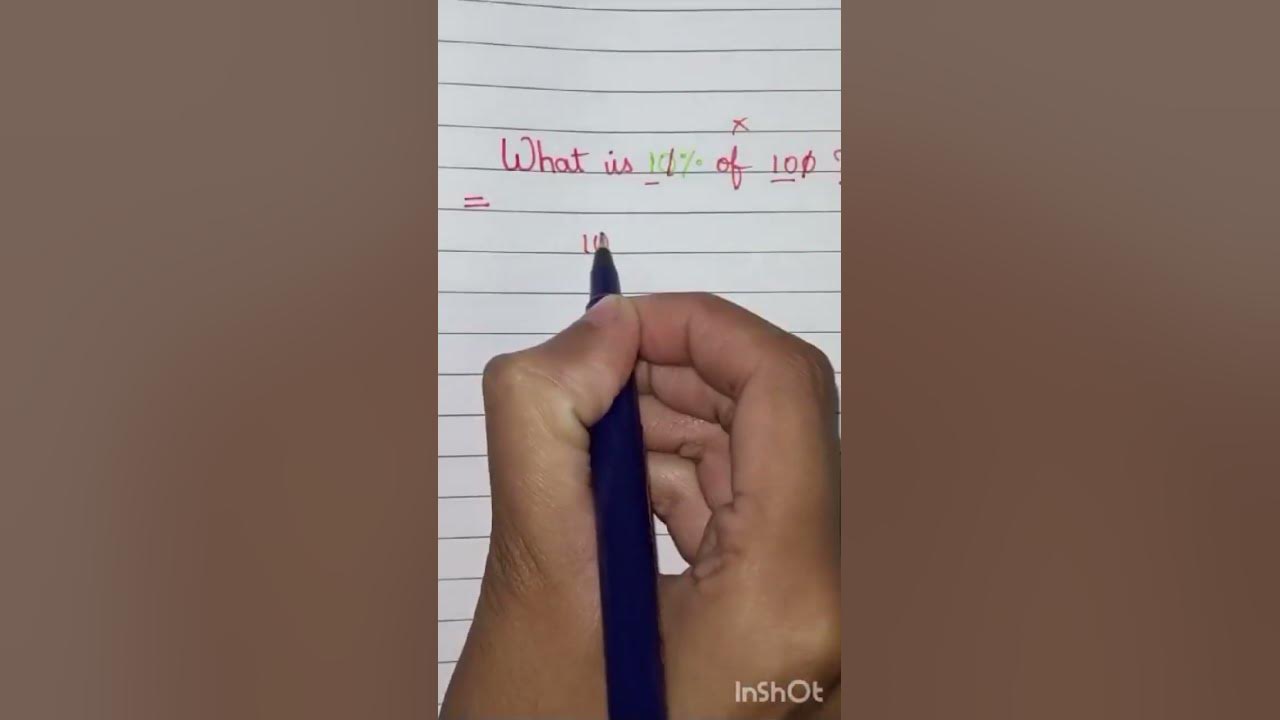 x
What is 10% of 100 ?
=
10
InShOt